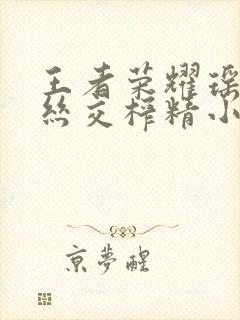 王者荣耀瑶
丝交榨精小
京夢醒